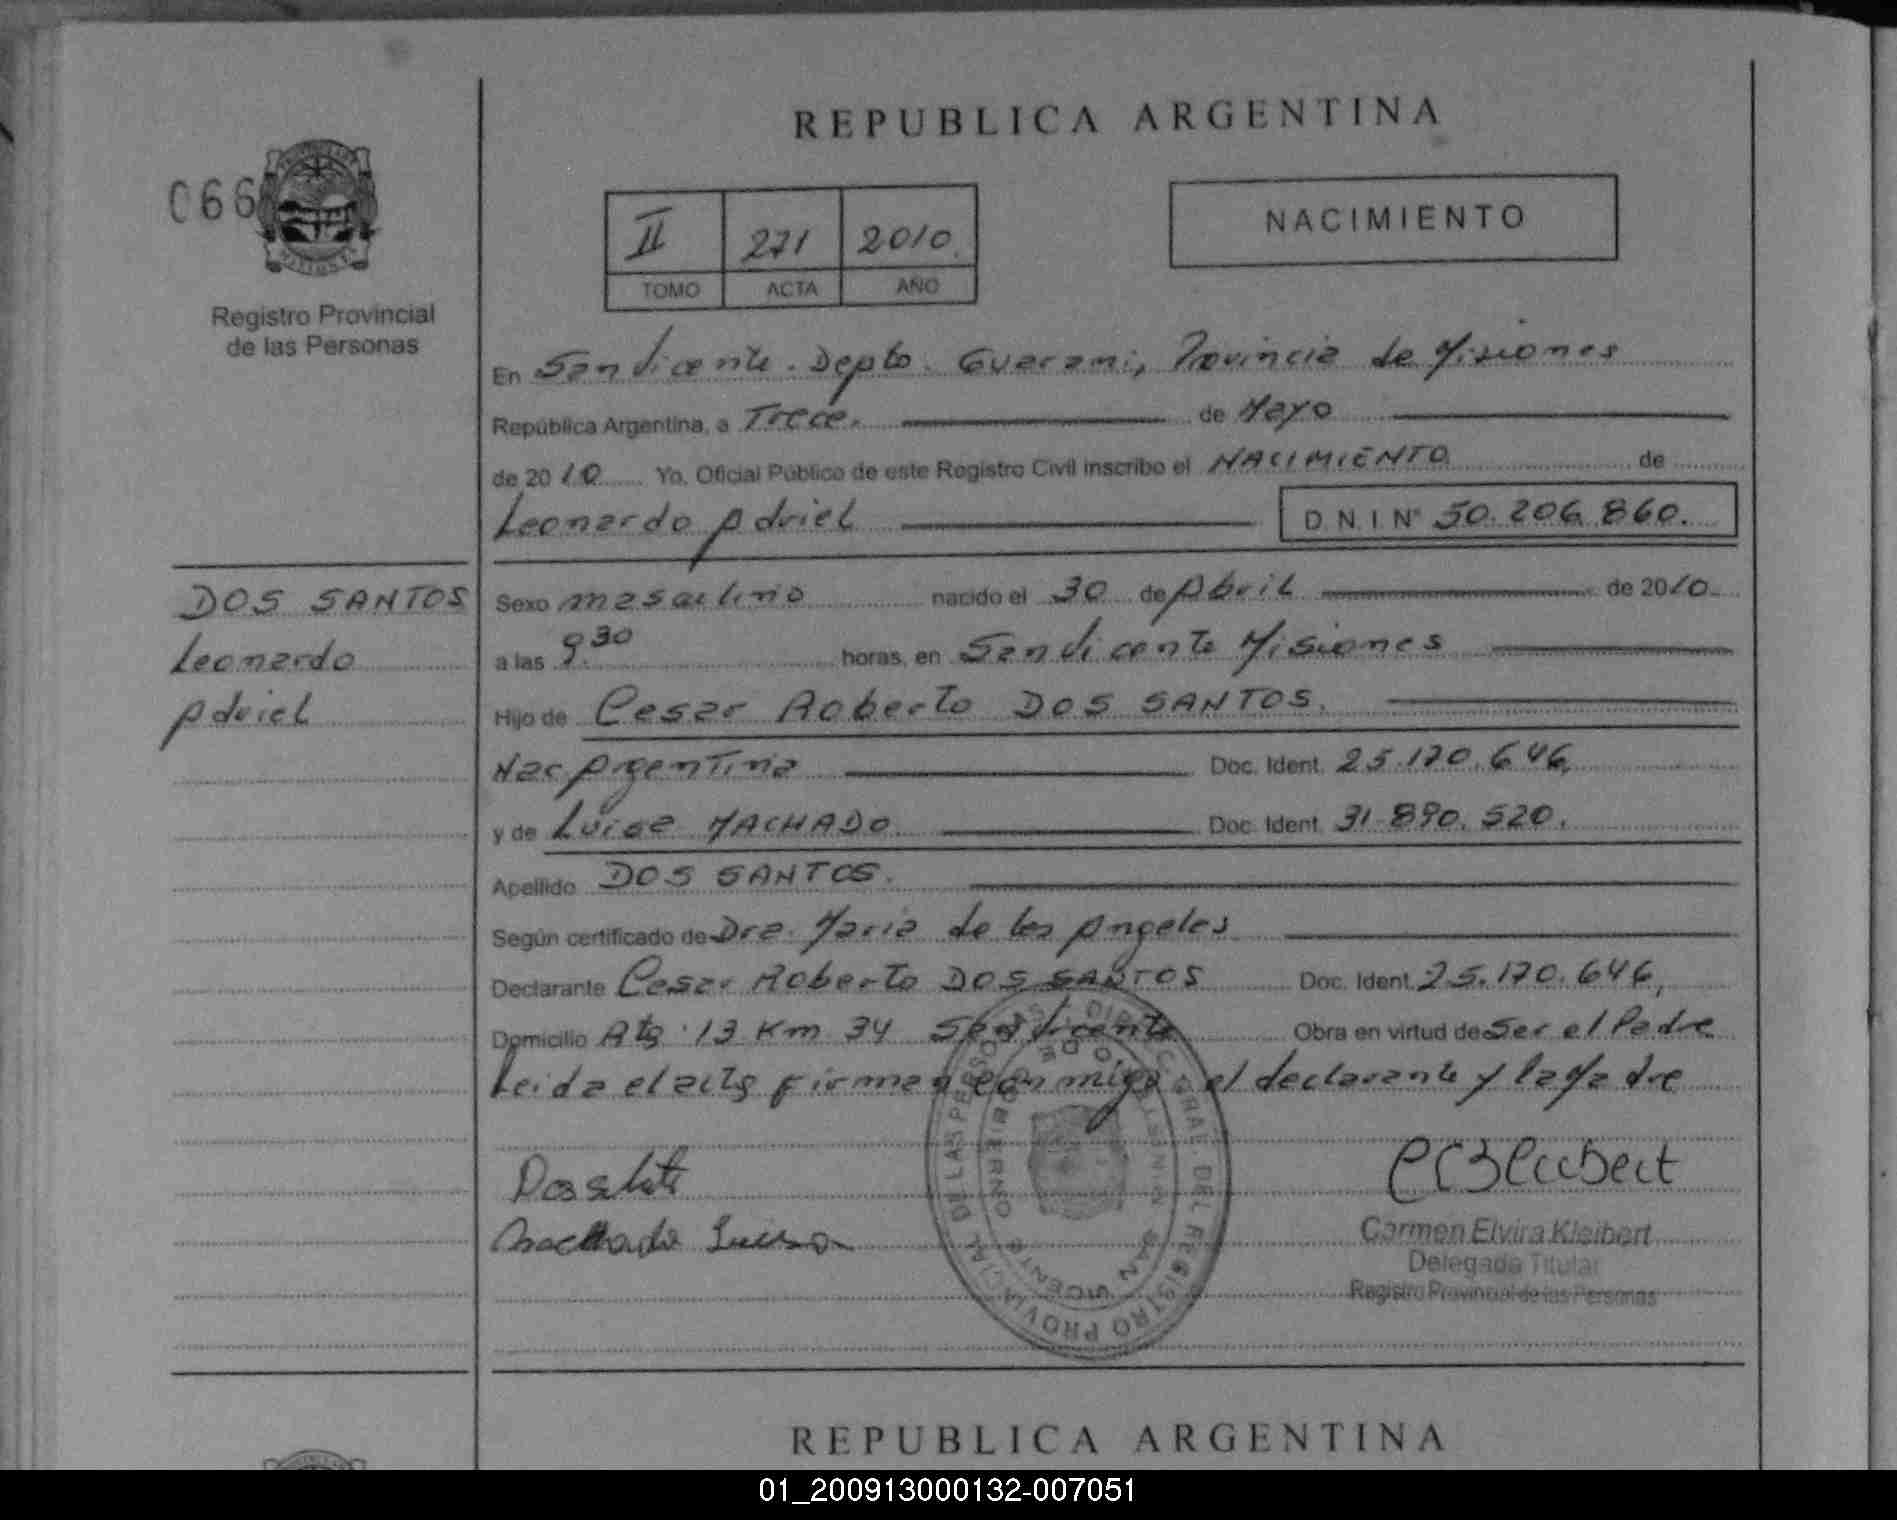 REPUBLICA ARGENTINA
066
II 271 2010.
TOMO ACTA AÑO
NACIMIENTO
Registro Provincial
de las Personas
En San Vicente. Depto. Guarani, Provincia de Misiones
República Argentina, a Trece. de Mayo
de 2010 Yo, Oficial Público de este Registro Civil inscribo el NACIMIENTO de
Leonardo Adriel D.N.I.N° 50.206.860.
DOS SANTOS
Leonardo
Adriel
Sexo masculino nacido el 30 de Abril de 2010.
a las 9.30 horas, en San Vicente Misiones
Hijo de Cesar Roberto DOS SANTOS.
Nac Argentina Doc. Ident. 25.170.646,
y de Luisa MACHADO Doc. Ident. 31.890.520.
Apellido DOS SANTOS.
Según certificado de Dra. Maria de los Angeles
Declarante Cesar Roberto DOS SANTOS Doc. Ident. 25.170.646,
Domicilio Rta 13 Km 34 San Vicente Obra en virtud de Ser el Padre
Leida el acta firman conmigo el declarante y la Madre
Machado Luisa
Carmen Elvira Kleibert
Delegada Titular
Registro Provincial de las Personas
DIREC. GRAL. DEL REGISTRO PROVINCIAL DE LAS PERSONAS
MINISTERIO DE GOBIERNO
SAN VICENTE
REPUBLICA ARGENTINA
01_200913000132-007051